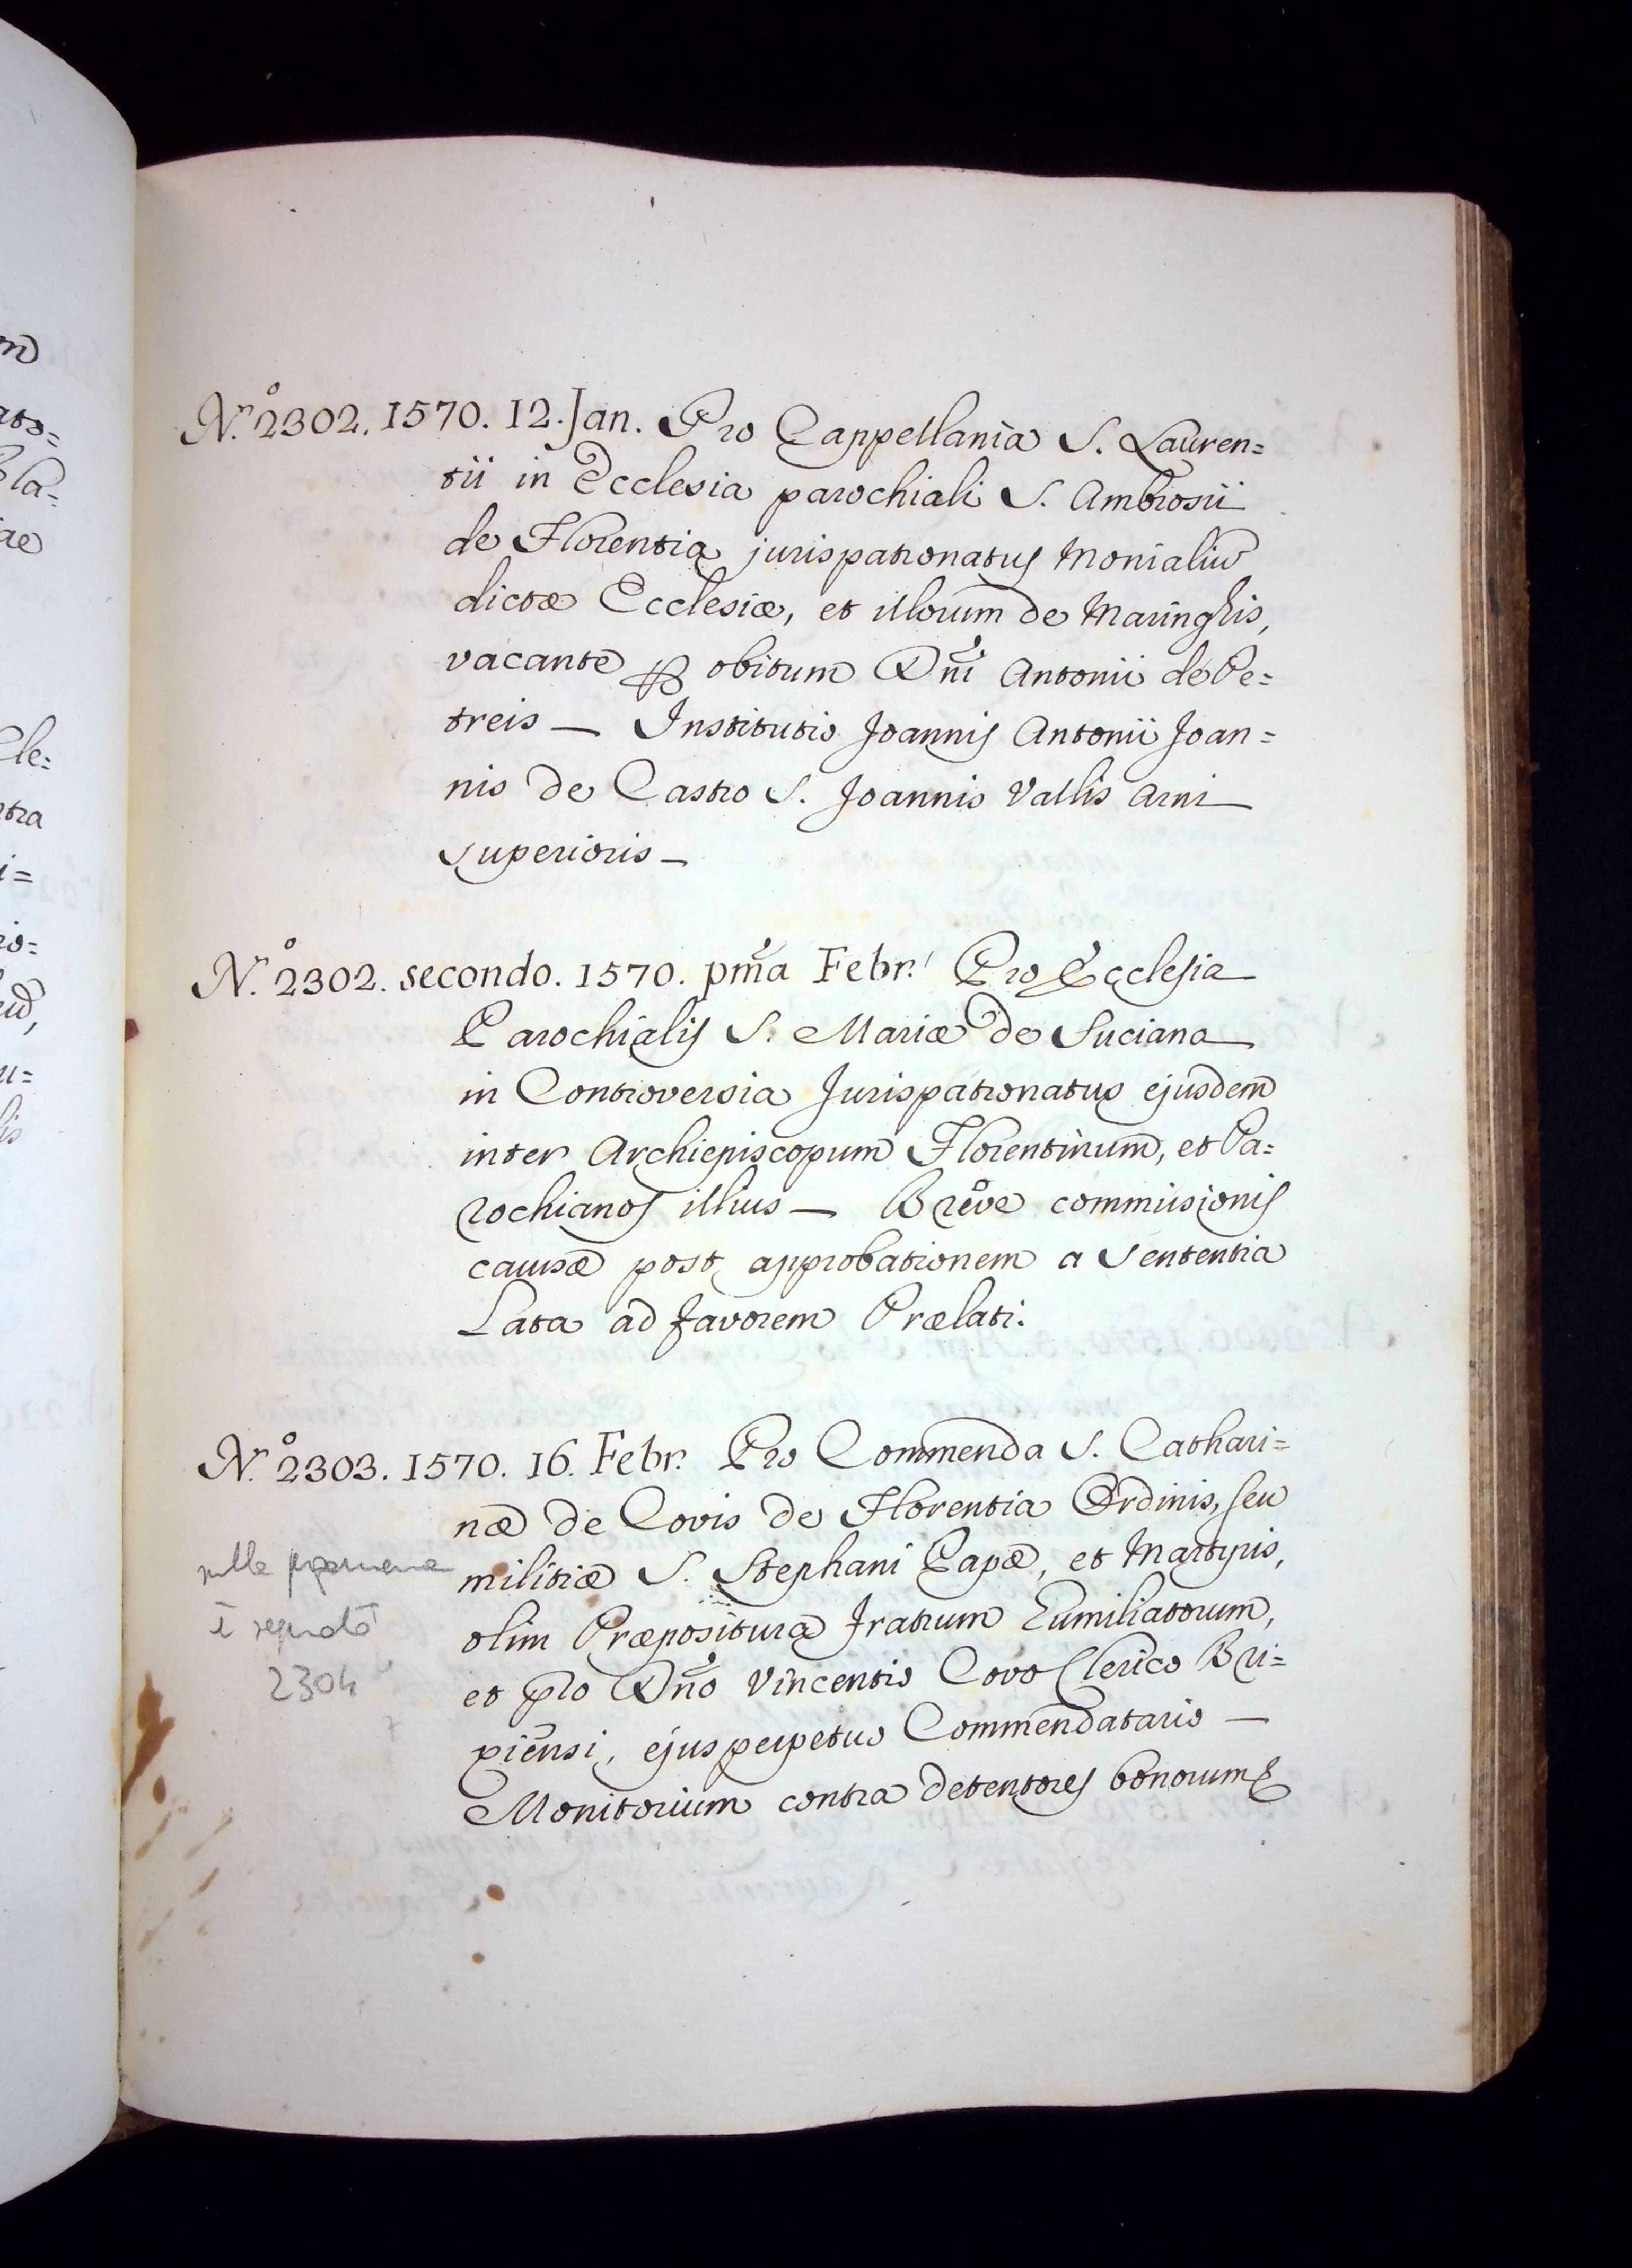 N.º 2302. 1570. 12. Jan. Pro Cappellania S. Lauren=
tii in Ecclesia parochiali S. Ambrosii
de Florentia jurispatronatus Monialiũ
dictæ Ecclesiæ, et illorum de Maringhis,
vacante ꝑ obitum Dñi Antonii de Pe=
treis — Institutio Joannis Antonii Joan=
nis de Castro S. Joannis Vallis Arni
superioris —
N.º 2302. secondo. 1570. pm̃a Febr. Pro Ecclesia
Parochialis S. Mariæ de Luciana
in Controversia Jurispatronatus ejusdem
inter Archiepiscopum Florentinum, et Pa=
rochianos illius — Breve commissionis
causæ post approbationem a Sententia
Lata ad favorem Prælati.
N.º 2303. 1570. 16. Febr. Pro Commenda S. Cathari=
næ de Covis de Florentia Ordinis, seu
militiæ S. Stephani Papæ, et Martyris,
olim Præpositura Fratrum Humiliatorum,
et pro Dño Vincentio Covo Clerico Bri=
xiensi, ejus perpetuo Commendatario —
Monitorium contra detentores bonorum &
sulla pergamena
è segnato
2304